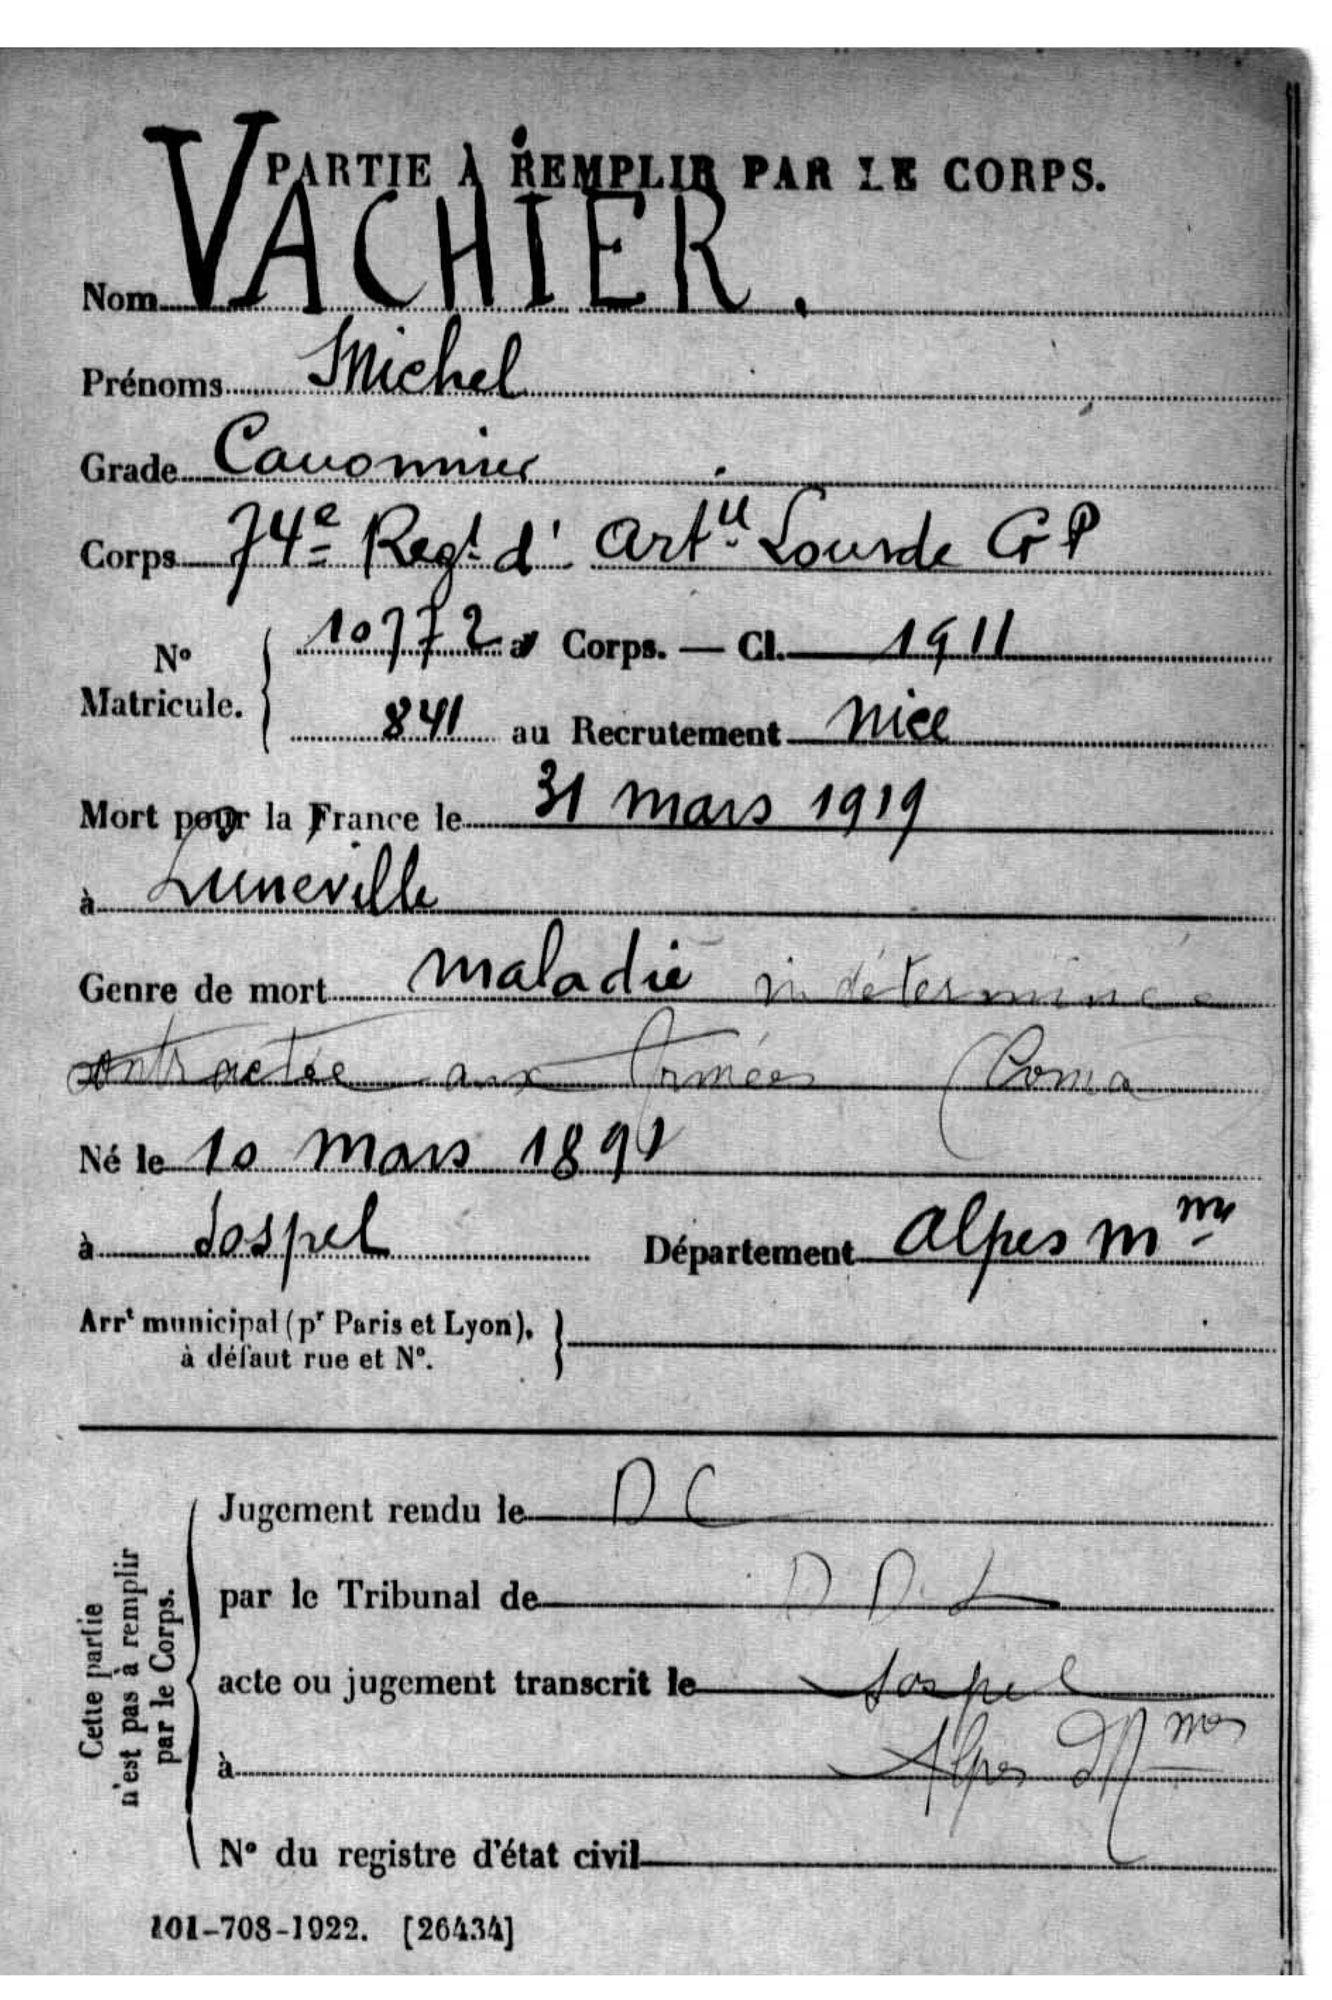 PARTIE À REMPLIR PAR LE CORPS.
Nom VACHIER.
Prénoms Michel
Grade Canonnier
Corps 74e Regt d' Artie Lourde G P
No Matricule. { 10772 au Corps. — Cl. 1911
841 au Recrutement Nice
Mort pour la France le 31 mars 1919
à Luneville
Genre de mort maladie indéterminée
contractée aux Armées (Coma
Né le 10 mars 1891
à Sospel Département Alpes Mmes
Arrt municipal (pr Paris et Lyon), }
à défaut rue et N°.
Cette partie
n'est pas à remplir
par le Corps.
Jugement rendu le D C
par le Tribunal de D D L
acte ou jugement transcrit le Sospel
à Alpes Mmes
N° du registre d'état civil
101-708-1922. [26434]